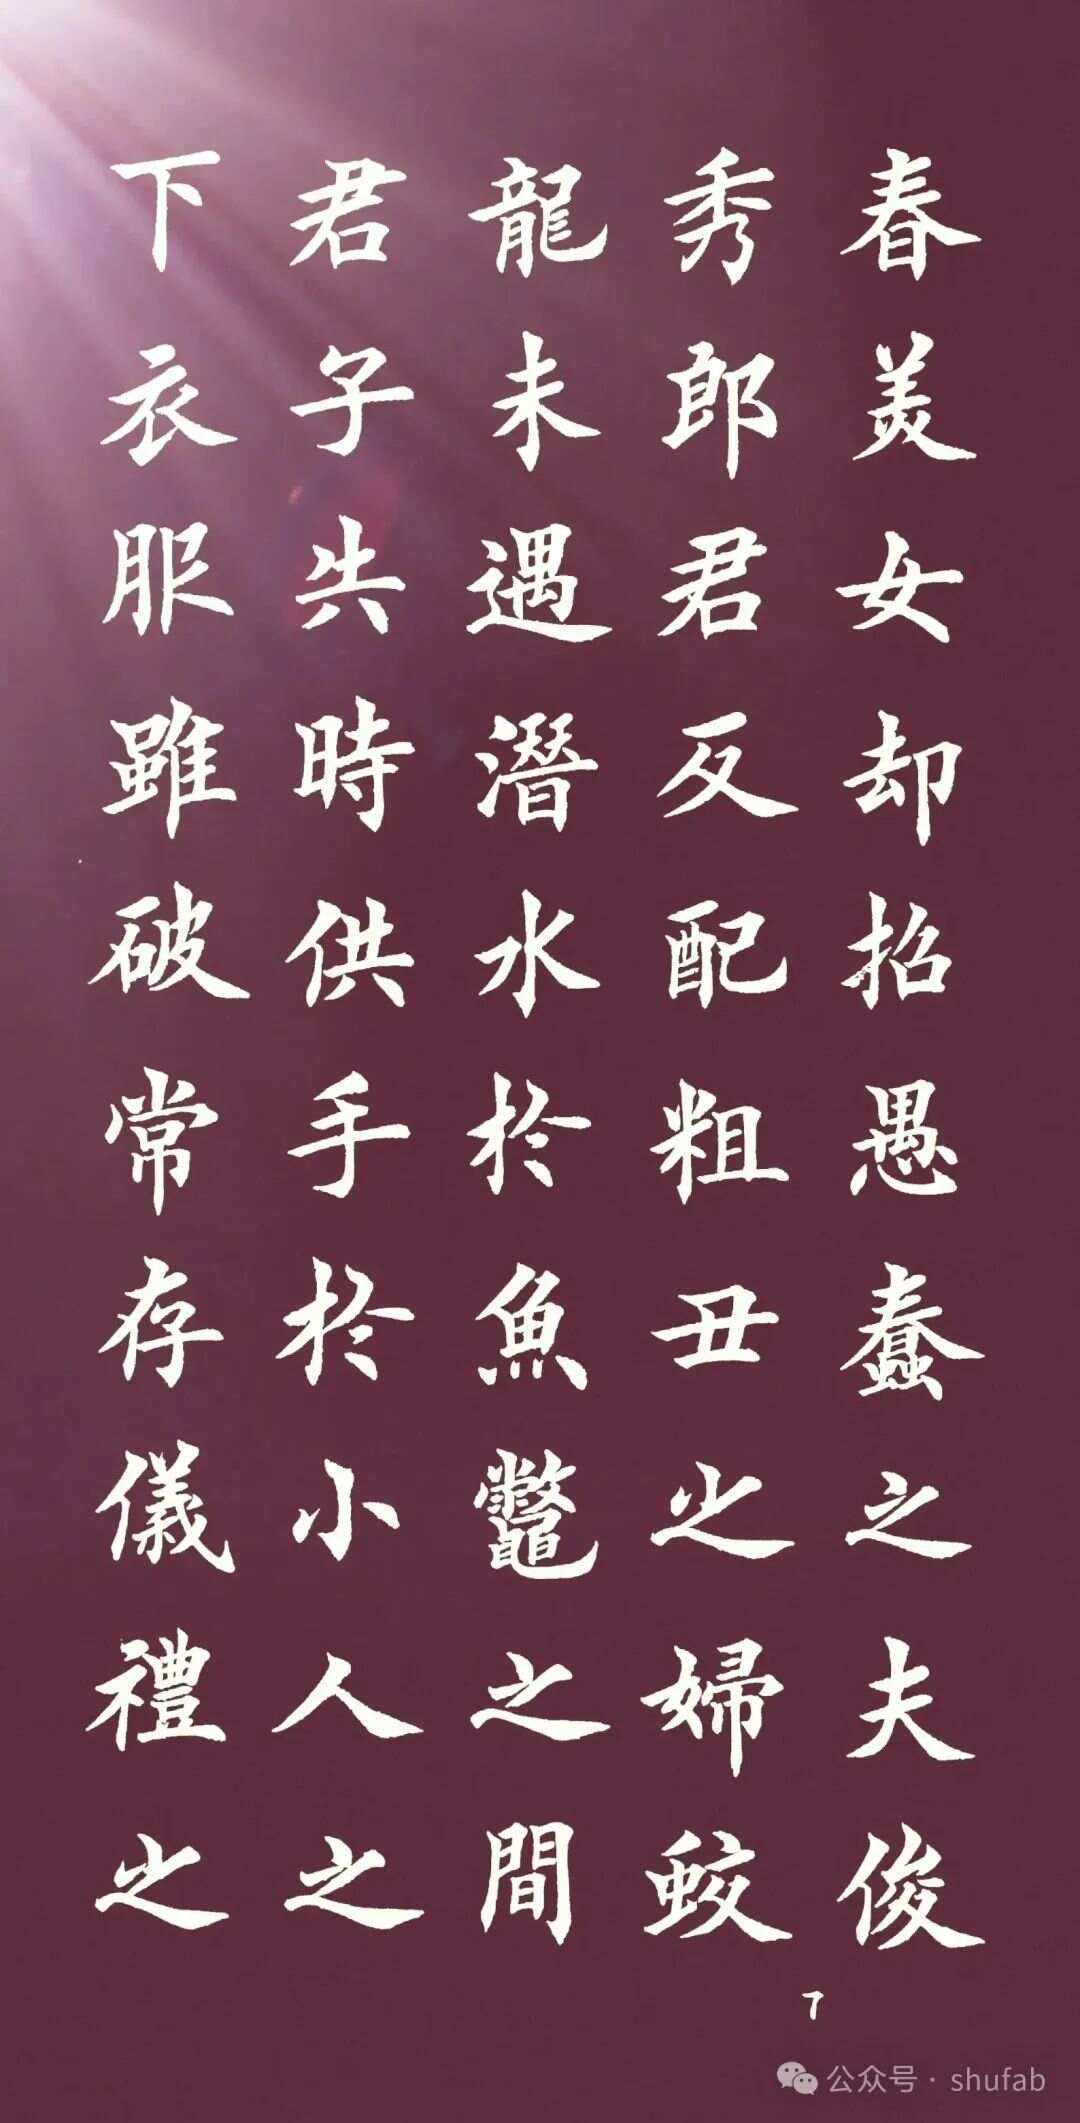 春美女却招愚蠢之夫俊
秀郎君反配粗丑之婦蛟
龍未遇潛水於魚鼈之間
君子失時供手於小人之
下衣服雖破常存儀禮之
7
公众号·shufab